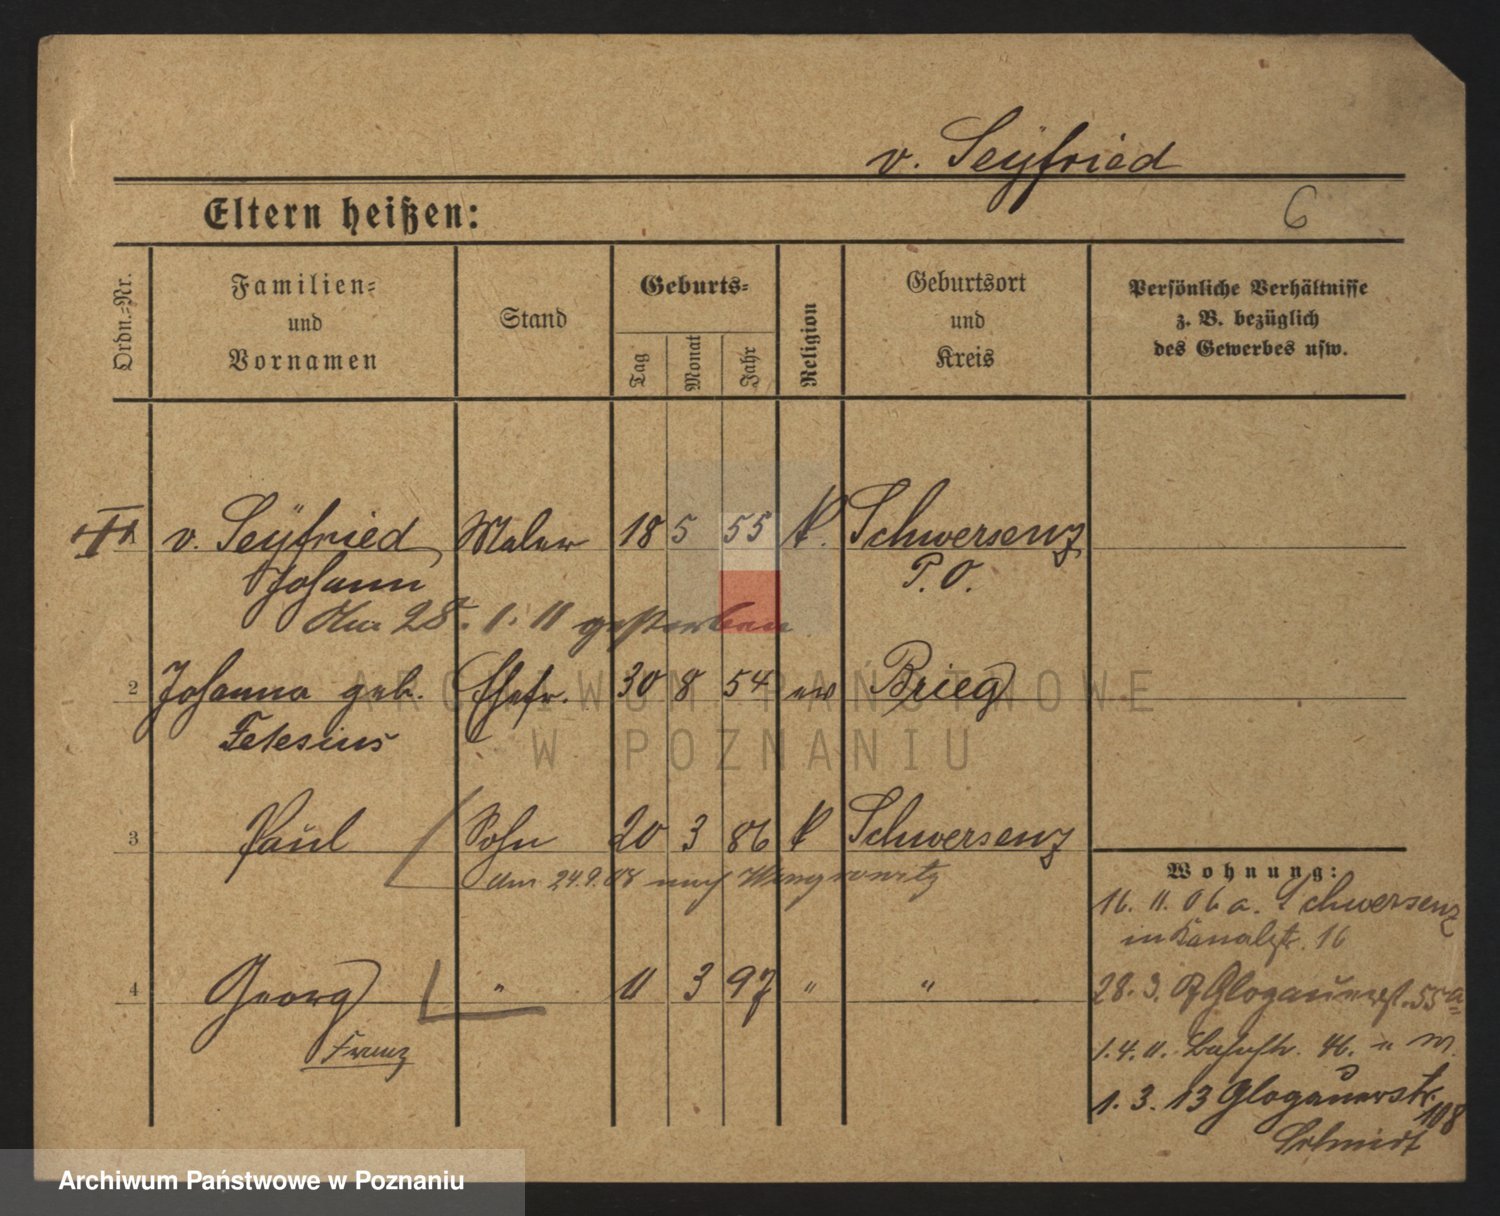 v. Seyfried
Eltern heißen:
6
Ordn.-Nr.
Familien-
und
Vornamen
Stand
Geburts-
Tag
Monat
Jahr
Religion
Geburtsort
und
Kreis
Persönliche Verhältnisse
z. B. bezüglich
des Gewerbes usw.
v. Seyfried Maler 18 5 55 k. Schwersenz
Johann P. O.
Am 28. 1. 11 gestorben
2 Johanna geb. Ehefr. 30 8 54 ev Brieg
Fetesius
3 Paul Sohn 20 3 86 k Schwersenz
am 24.9.08 nach Wongrowitz
4 Georg " 11 3 97 " "
Franz
Wohnung:
16. 11. 06 a. Schwersenz
in Kanalstr. 16
28. 3. Glogauerst. 55a
1. 4. 11. Bahnstr. 46.
1. 3. 13 Glogauerstr.
108
Schmidt
ARCHIWUM PAŃSTWOWE
W POZNANIU
Archiwum Państwowe w Poznaniu